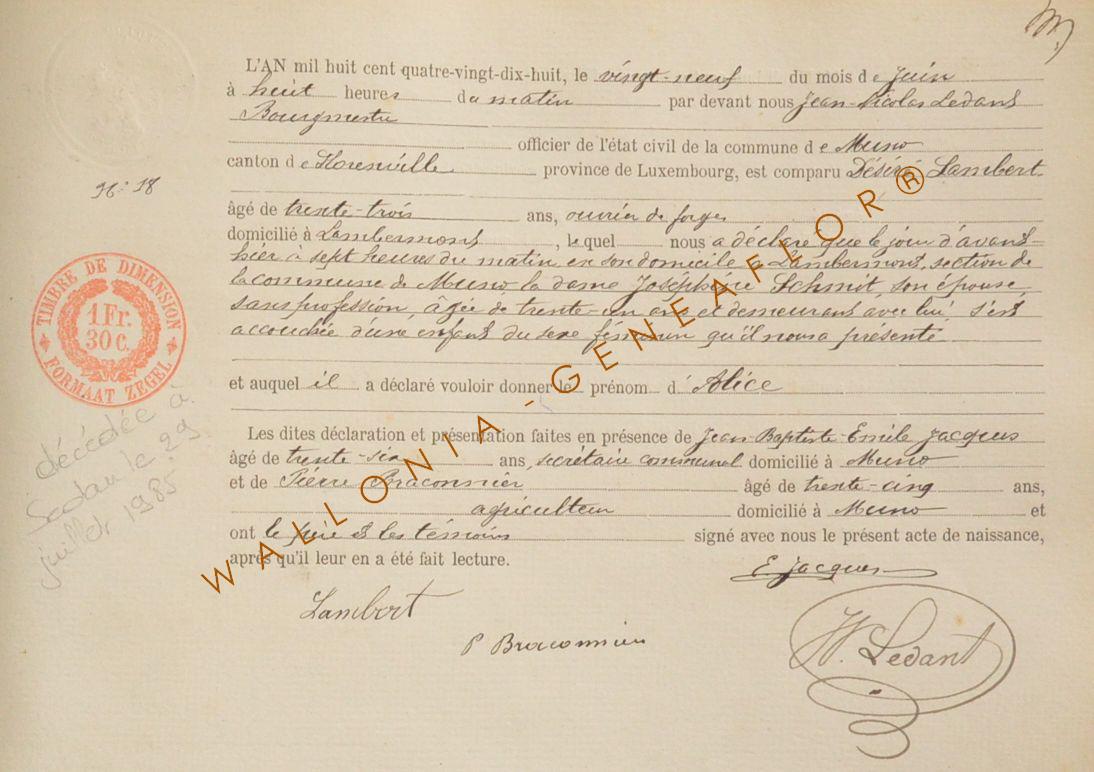 L'AN mil huit cent quatre-vingt-dix-huit, le vingt-neuf du mois de Juin
à huit heures du matin par devant nous Jean-Nicolas Ledant
Bourgmestre
officier de l'état civil de la commune de Muno
canton de Florenville province de Luxembourg, est comparu Désiré Lambert
N: 18
âgé de trente-trois ans, ouvrier de forges
domicilié à Lambermont, lequel nous a déclaré que le jour d'avant-
hier à sept heures du matin, en son domicile à Lambermont, section de
la commune de Muno la dame Joséphine Schmit, son épouse
sans profession, âgée de trente-un ans et demeurant avec lui, s'est
accouchée d'une enfant du sexe féminin qu'il nous a présenté
et auquel il a déclaré vouloir donner le prénom d'Alice
Les dites déclaration et présentation faites en présence de Jean-Baptiste-Emile Jacques
âgé de trente-six ans, secrétaire communal domicilié à Muno
et de Pierre Braconnier âgé de trente-cinq ans,
agriculteur domicilié à Muno et
ont le père & les témoins signé avec nous le présent acte de naissance,
après qu'il leur en a été fait lecture.
E Jacques
Lambert
P Braconnier
N. Ledant
TIMBRE DE DIMENSION
1 Fr.
30 C.
FORMAAT ZEGEL
décédée à
Sedan le 29
juillet 1985
WALLONIA - GENEAFLOR®